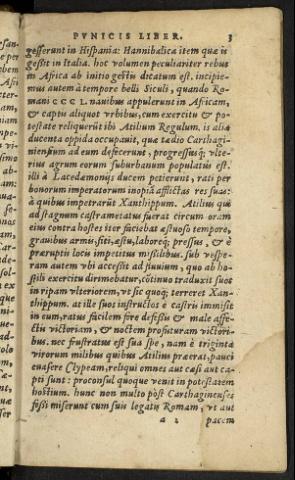 PVNICIS LIBER. 3
gesserunt in Hispania: Hannibalica item quæ is
gessit in Italia. hoc volumen peculiariter rebus
in Africa ab initio gestis dicatum est. incipie-
mus autem à tempore belli Siculi, quando Ro-
mani CCCL. nauibus appulerunt in Africam,
& captis aliquot vrbibus, cum exercitu & po-
testate reliquerūt ibi Atilium Regulum. is alia
ducenta oppida occupauit, quæ tædio Carthagi-
niensium ad eum desecerunt, progressusq; vlte-
rius agrum eorum suburbanum populatus est.
illi à Lacedæmonijs ducem petierunt, rati per
bonorum imperatorum inopiā afflictas res suas:
à quibus impetrarūt Xanthippum. Atilius qui
ad stagnum castrametatus fuerat circum oram
eius contra hostes iter faciebat æstuoso tempore,
grauibus armis, siti, æstu, laboreq; pressus, & è
præruptis locis impetitus missilibus. sub vespe-
ram autem vbi accessit ad fluuium, quo ab ho-
stili exercitu dirimebatur, cōtinuo traduxit suos
in ripam vlteriorem, vt sic quoq; terreret Xan-
thippum. at ille suos instructos è castris immisit
in eum, ratus facilem fore defessis & male affe-
ctis victoriam, & noctem profuturam victori-
bus. nec frustratus est sua spe, nam è triginta
virorum milibus quibus Atilius præerat, pauci
euasere Clypeam, reliqui omnes aut cæsi aut ca-
pti sunt: proconsul quoque venit in potestatem
hostium. hunc non multo pòst Carthaginenses
fessi miserunt cum suis legatis Romam, vt aut
a 2 pacem